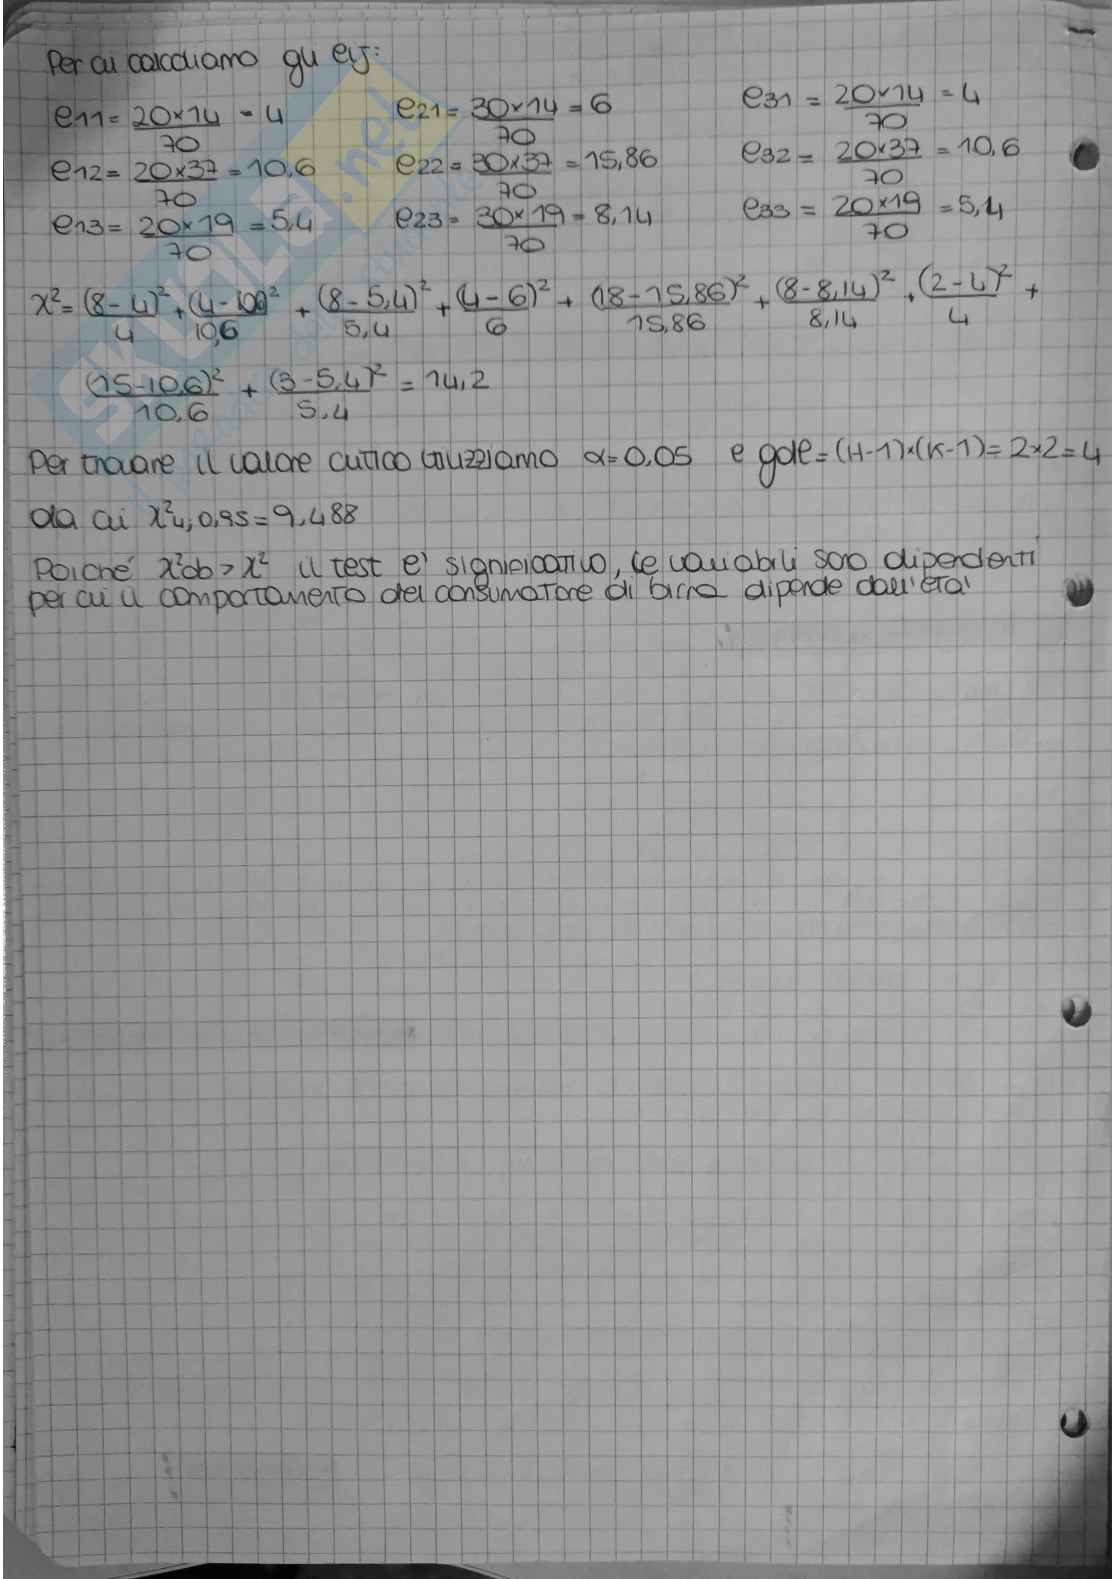 Per cui calcoliamo gli eij:
e11 = 20×14/70 = 4   e21 = 30×14/70 = 6   e31 = 20×14/70 = 4
e12 = 20×37/70 = 10,6   e22 = 30×37/70 = 15,86   e32 = 20×37/70 = 10,6
e13 = 20×19/70 = 5,4   e23 = 30×19/70 = 8,14   e33 = 20×19/70 = 5,4
x² = (8-4)²/4 + (4-10,6)²/10,6 + (8-5,4)²/5,4 + (4-6)²/6 + (18-15,86)²/15,86 + (8-8,14)²/8,14 + (2-4)²/4 +
(15-10,6)²/10,6 + (3-5,4)²/5,4 = 14,2
Per trovare il valore critico utilizziamo α=0,05 e gdl = (H-1)×(K-1) = 2×2 = 4
da cui x²4,0,95 = 9,488
Poiché x²ob > x² il test e' significativo, le variabili sono dipendenti
per cui il comportamento del consumatore di birra dipende dall'eta'